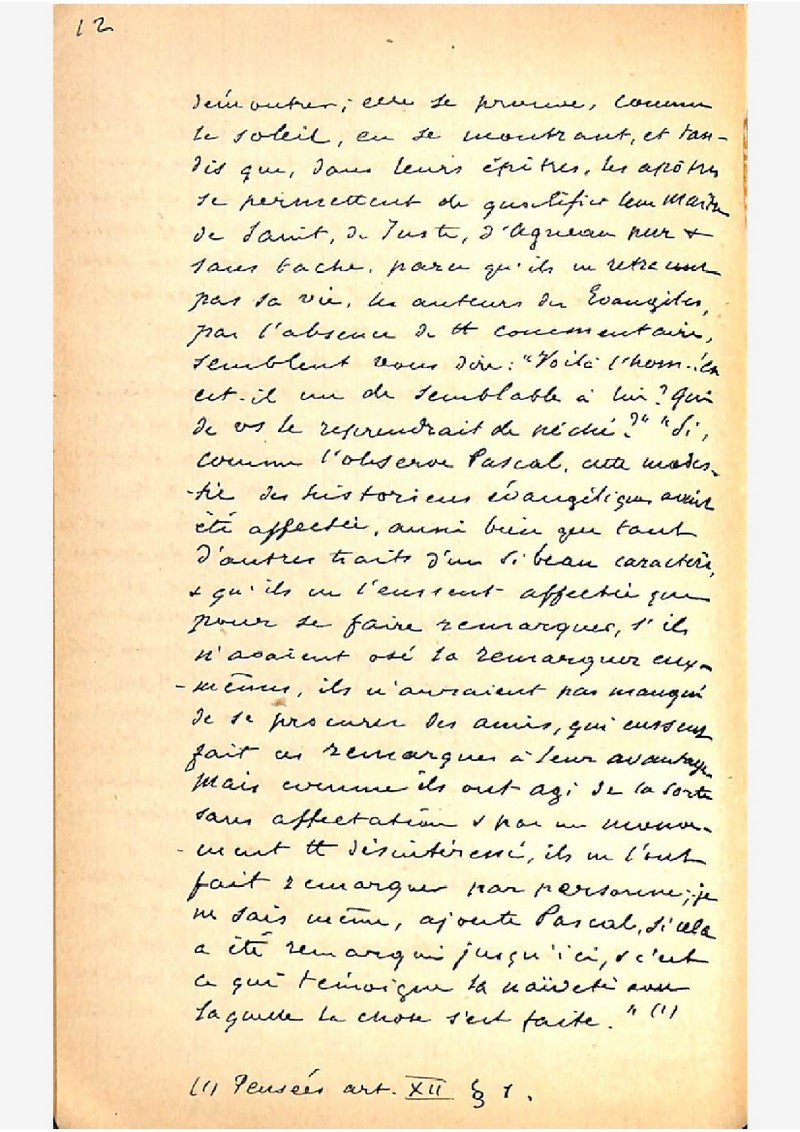 12
démontrer; elle se prouve, comme
le soleil, en se montrant, et tan-
dis que, dans leurs épîtres, les apôtres
se permettent de qualifier leur Maître
de Saint, de Juste, d'Agneau pur &
sans tache, parce qu'ils ne retracent
pas sa vie, les auteurs des Evangiles,
par l'absence de tt commentaire,
semblent vous dire: "Voilà l'hom.! En
est-il un de semblable à lui? Qui
de vs le reprendrait de péché?" "Si,
comme l'observe Pascal, cette modes-
-tie des historiens évangéliques avait
été affectée, aussi bien que tant
d'autres traits d'un si beau caractère,
& qu'ils ne l'eussent affectée que
pour se faire remarquer, s'ils
n'avaient osé la remarquer eux-
-mêmes, ils n'auraient pas manqué
de se procurer des amis, qui eussent
fait ces remarques à leur avantage.
Mais comme ils ont agi de la sorte
sans affectation & par un mouve-
-ment tt désintéressé, ils ne l'ont
fait remarquer par personne; je
ne sais même, ajoute Pascal, si cela
a été remarqué jusqu'ici, & c'est
ce qui témoigne la naïveté avec
laquelle la chose s'est faite." (1)
(1) Pensées art. XII § 1.